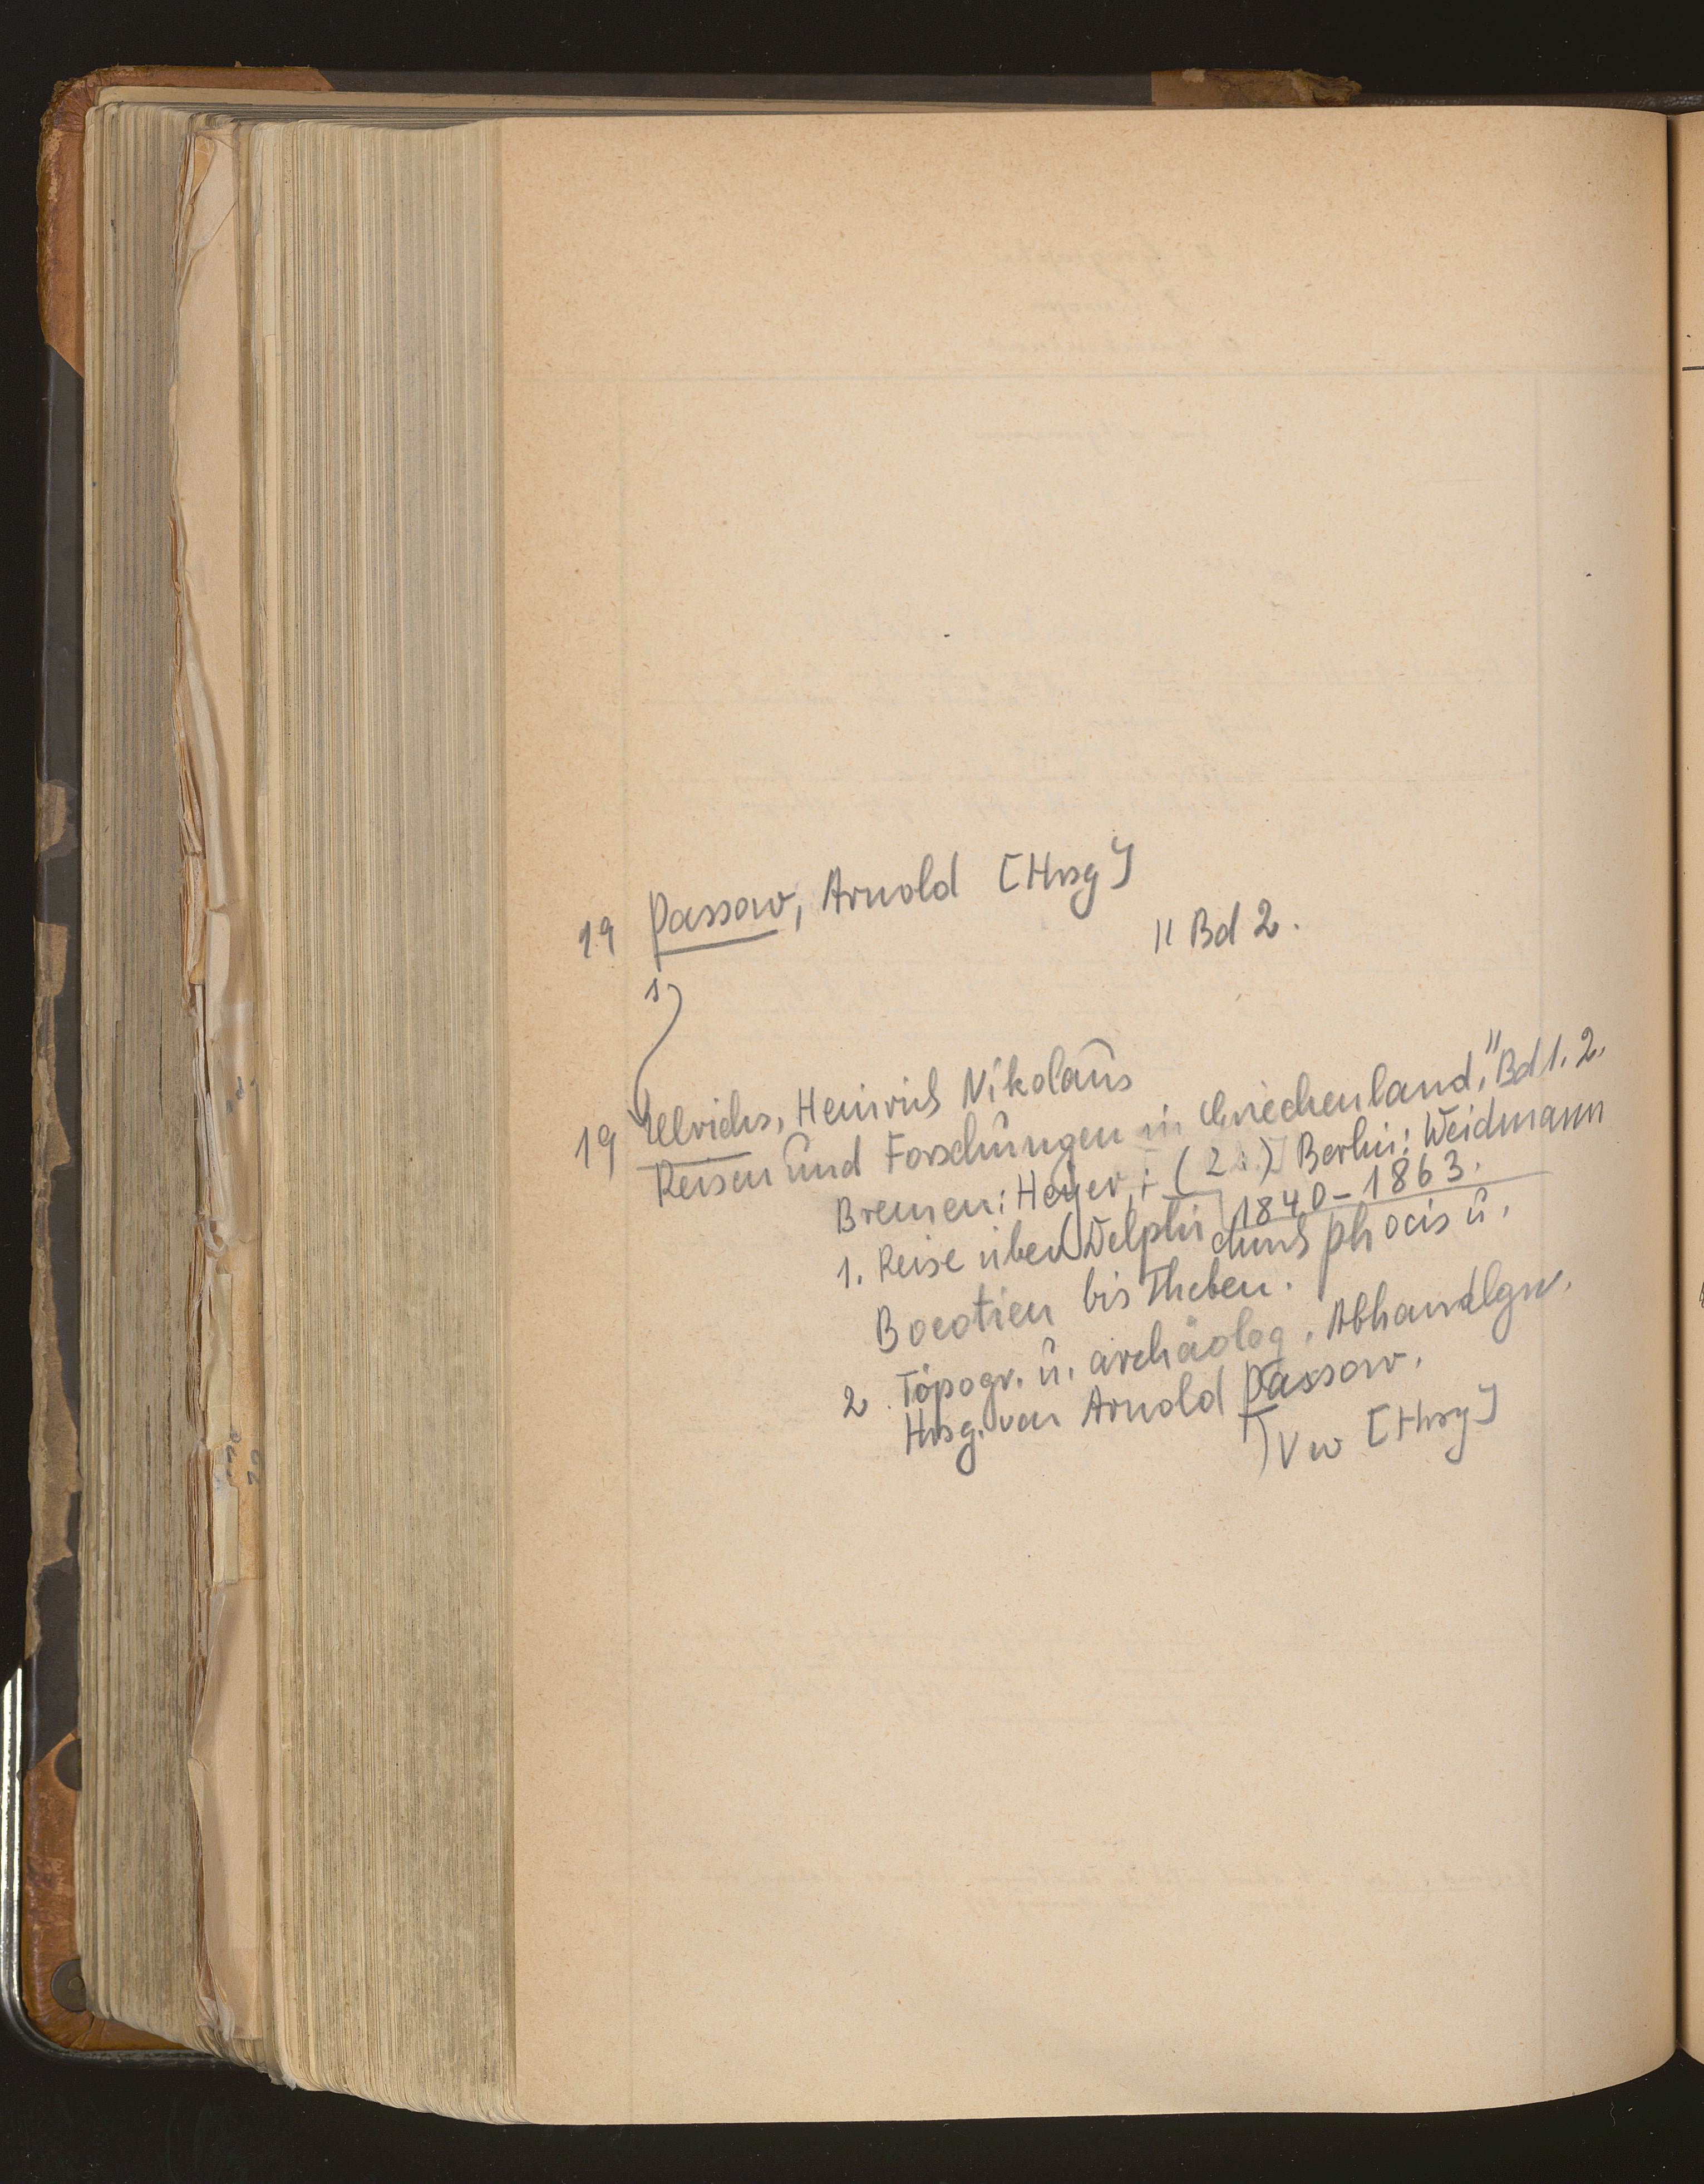 19 Passow, Arnold [Hrsg]
" Bd 2.
s
19 Ulrichs, Heinrich Nikolaus
Reisen und Forschungen in Griechenland," Bd 1. 2.
Bremen: Heyer; (2:) Berlin: Weidmann
1840-1863.
1. Reise über Delphi durch Phocis u.
Boeotien bis Theben.
2. Topogr. u. archäolog. Abhandlgn.
Hrsg. von Arnold Passow.
Vw [Hrsg]